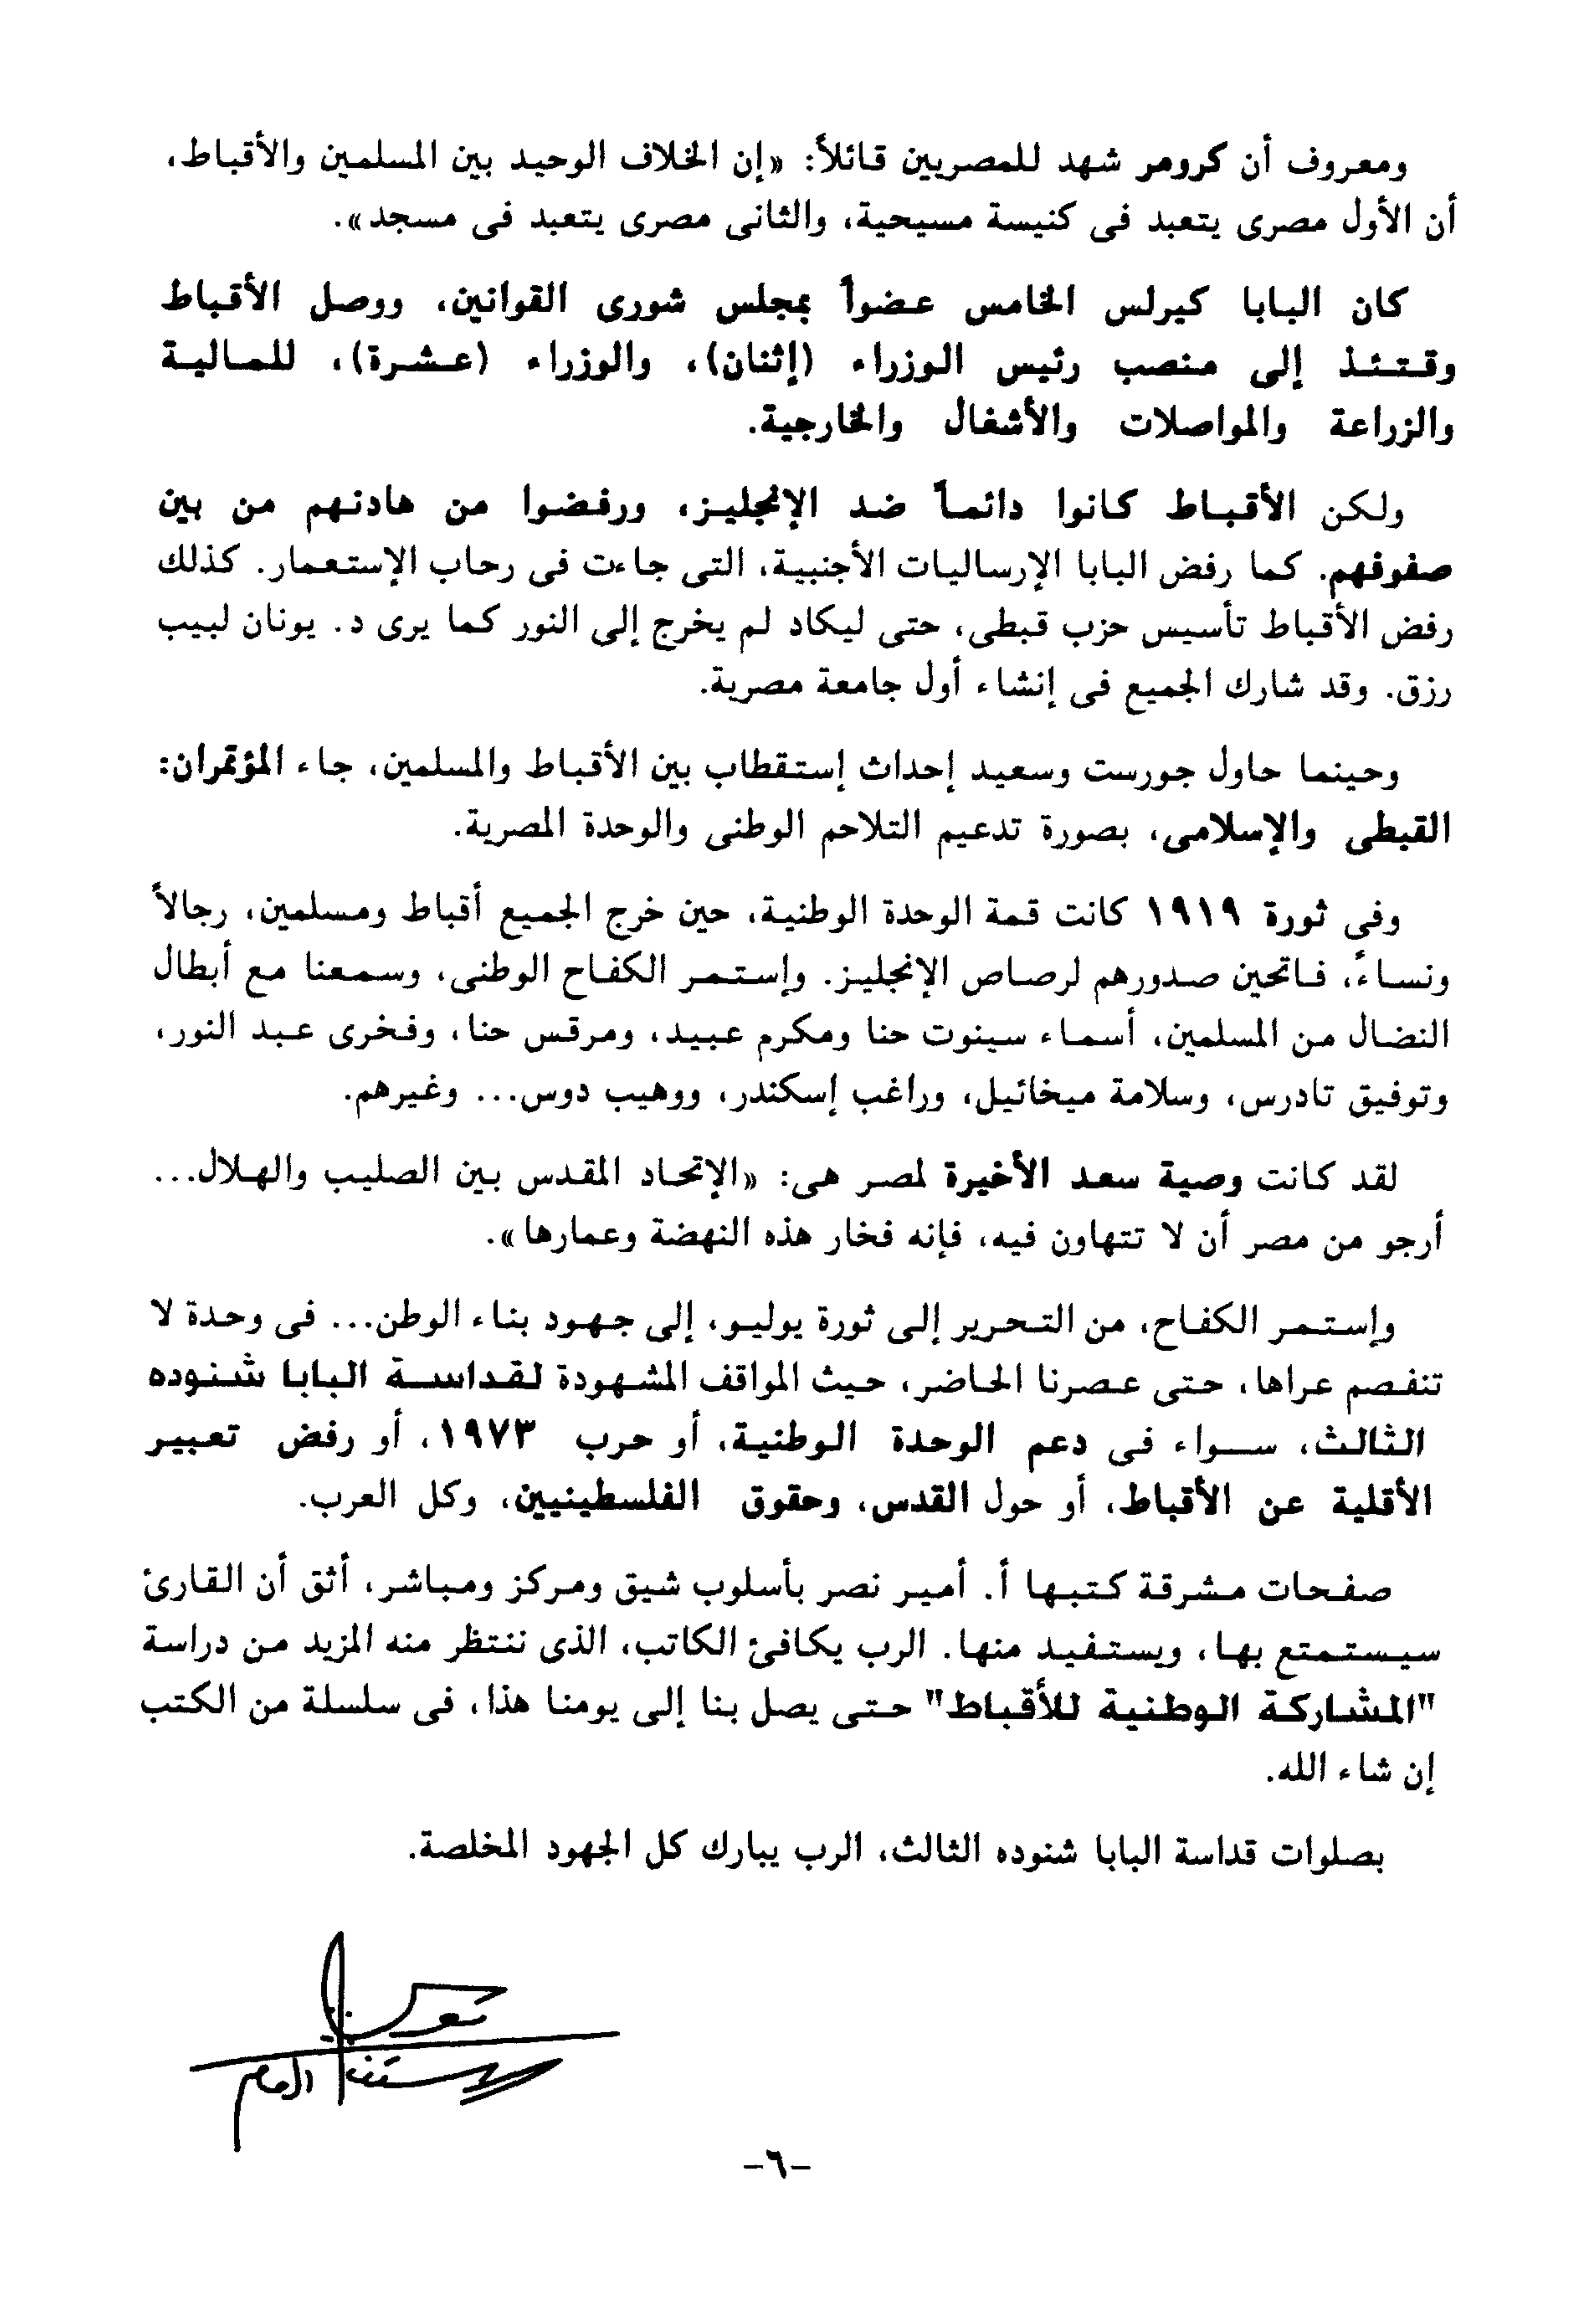 ومعروف أن كرومر شهد للمصريين قائلاً: «إن الخلاف الوحيد بين المسلمين والأقباط،
أن الأول مصرى يتعبد فى كنيسة مسيحية، والثانى مصرى يتعبد فى مسجد».
كان البابا كيرلس الخامس عضواً بمجلس شورى القوانين، ووصل الأقباط
وقتئذ إلى منصب رئيس الوزراء (إثنان)، والوزراء (عشرة)، للمالية
والزراعة والمواصلات والأشغال والخارجية.
ولكن الأقباط كانوا دائماً ضد الإنجليز، ورفضوا من هادنهم من بين
صفوفهم. كما رفض البابا الإرساليات الأجنبية، التى جاءت فى رحاب الإستعمار. كذلك
رفض الأقباط تأسيس حزب قبطى، حتى ليكاد لم يخرج إلى النور كما يرى د. يونان لبيب
رزق. وقد شارك الجميع فى إنشاء أول جامعة مصرية.
وحينما حاول جورست وسعيد إحداث إستقطاب بين الأقباط والمسلمين، جاء المؤتمران:
القبطى والإسلامى، بصورة تدعيم التلاحم الوطنى والوحدة المصرية.
وفى ثورة ١٩١٩ كانت قمة الوحدة الوطنية، حين خرج الجميع أقباط ومسلمين، رجالاً
ونساءً، فاتحين صدورهم لرصاص الإنجليز. وإستمر الكفاح الوطنى، وسمعنا مع أبطال
النضال من المسلمين، أسماء سينوت حنا ومكرم عبيد، ومرقس حنا، وفخرى عبد النور،
وتوفيق تادرس، وسلامة ميخائيل، وراغب إسكندر، ووهيب دوس... وغيرهم.
لقد كانت وصية سعد الأخيرة لمصر هى: «الإتحاد المقدس بين الصليب والهلال...
أرجو من مصر أن لا تتهاون فيه، فإنه فخار هذه النهضة وعمارها».
وإستمر الكفاح، من التحرير إلى ثورة يوليو، إلى جهود بناء الوطن... فى وحدة لا
تنفصم عراها، حتى عصرنا الحاضر، حيث المواقف المشهودة لقداسة البابا شنوده
الثالث، سواء فى دعم الوحدة الوطنية، أو حرب ١٩٧٣، أو رفض تعبير
الأقلية عن الأقباط، أو حول القدس، وحقوق الفلسطينيين، وكل العرب.
صفحات مشرقة كتبها أ. أمير نصر بأسلوب شيق ومركز ومباشر، أثق أن القارئ
سيستمتع بها، ويستفيد منها. الرب يكافئ الكاتب، الذى ننتظر منه المزيد من دراسة
"المشاركة الوطنية للأقباط" حتى يصل بنا إلى يومنا هذا، فى سلسلة من الكتب
إن شاء الله.
بصلوات قداسة البابا شنوده الثالث، الرب يبارك كل الجهود المخلصة.
العام
-٦-